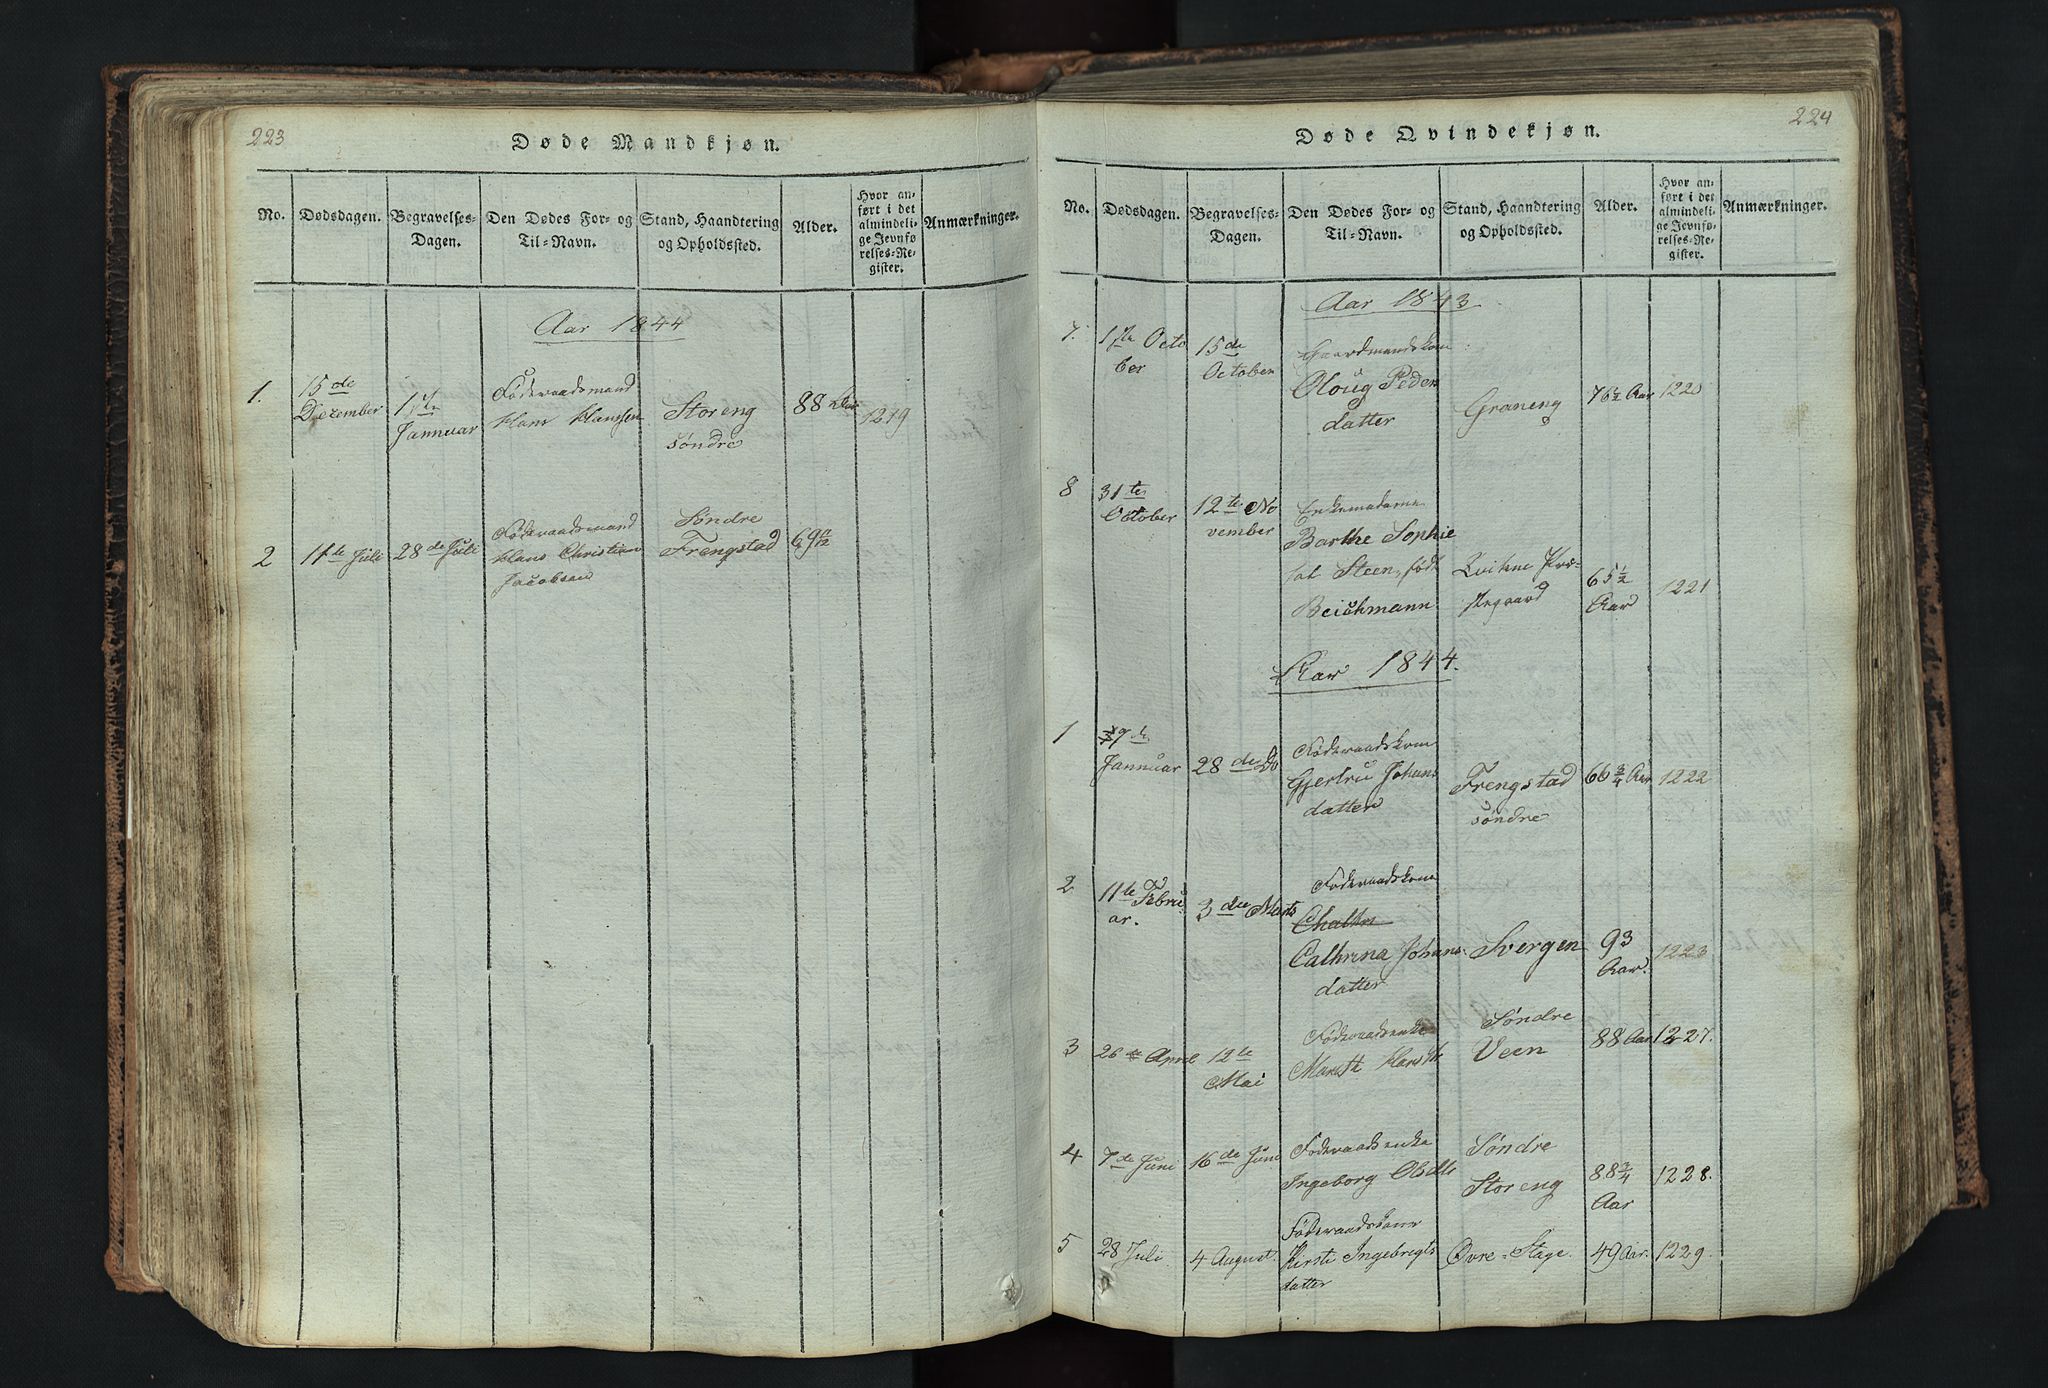 223
Døde Mandkjøn.
No.
Dødsdagen.
Begravelses-
Dagen.
Den Dødes For- og
Til-Navn.
Stand, Haandtering
og Opholdssted.
Alder.
Hvor an-
ført i det
almindeli-
ge Jevnfø
relses-Re-
gister.
Anmærkninger.
Aar 1844
1.
15de
Dezember
1ste
Jannuar
Föderaadsmand
Hans Hanssen
Storeng
söndre
88
1219
2
11te Juli
28de Juli
Föderaadsmand
Hans Christian
Jacobsen
Söndre
Frengstad
69
224
Døde Qvindekjøn.
No.
Dødsdagen.
Begravelses-
Dagen.
Den Dødes For- og
Til-Navn.
Stand, Haandtering
og Opholdssted.
Alder.
Hvor an-
ført i det
almindeli-
ge Jevnfø-
relses-Re-
gister.
Anmærkninger.
Aar 1843
7.
1ste Octo
ber
15de
October
Gaardmandskone
Oloug Peders
datter
Graneng
76½ Aar
1220
8
31te
October
12te No
vember
Enkemadame
Barthe Sophie
Steen, född
Beichmann
Kvikne Præ-
stegaard
65½
Aar
1221
Aar 1844.
1
9de
Jannuar
28de Do
Föderaadskone
Gjertru Johans
datter
Frengstad
söndre
66¾ Aar
1222
2
11te Febru
ar.
3die Marts
Föderaadskone
Cathrina Johans-
datter
Svergen
93
Aar.
1223
3
26de April
12te
Mai
Föderaadsenke
Marith
Söndre
Veen
88 Aar
1227.
4
7de Juni
16de Juni
Föderaadsenke
Ingeborg Olsdtr
Söndre
Storeng
88¾
Aar
1228.
5
28 Juli.
4 August.
Föderaadskone
Kirsti Ingebregts
datter
Øvre-Stage.
49 Aar.
1229.